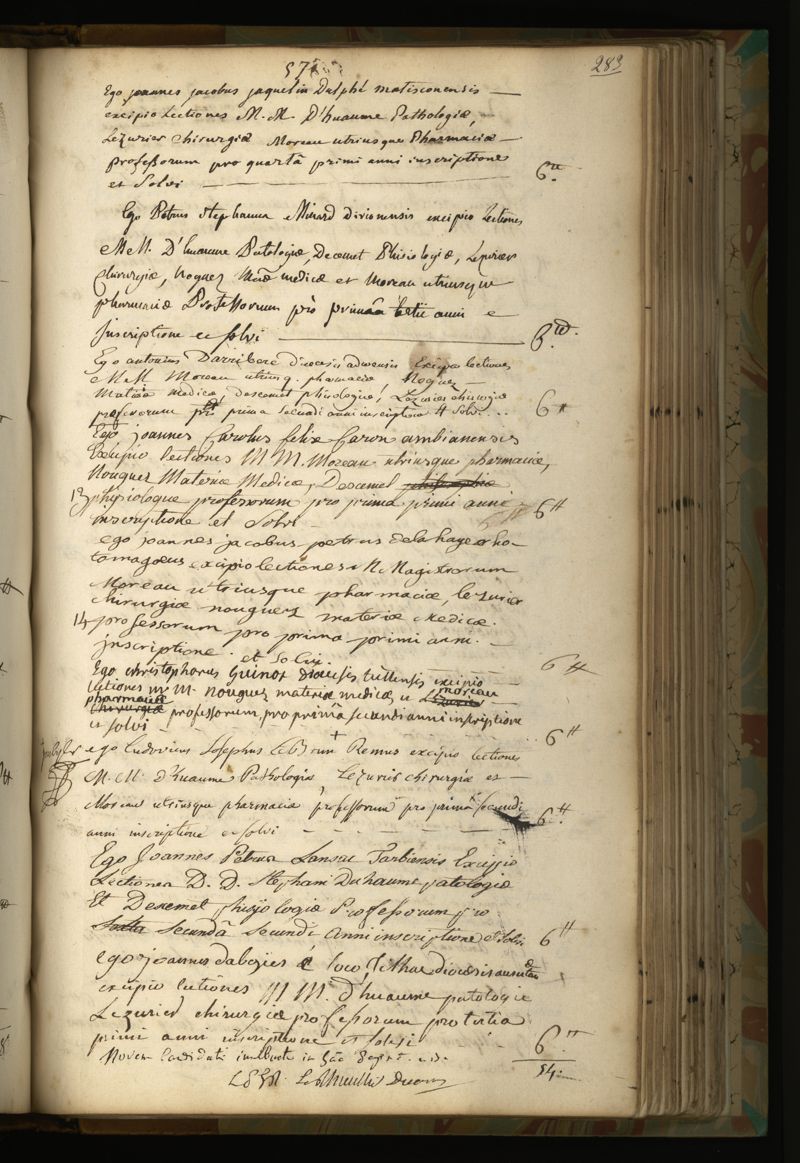 57
283
Ego joannes jacobus jaquelin Dulphé matisconensis —
excipio Lectiones M. M. D'huaume Pathologiæ,
Lezurier chirurgiæ Moreau utriusque Pharmaciæ —
professorum pro quartâ primi anni inscriptione
et Solvi — 6 ₶
Ego Petrus Stephanus Minard divionensis excipio Lectiones
M. M. D'huaume Patologiæ, Decemet Phisiologiæ, Lezurier
Chirurgiæ, Noguez Mæ medicæ et Moreau utriusque
pharmaciæ Professorum pro primâ tertii anni
Inscriptione et solvi — 6 ₶
Ego antonius Darribere diœcesis adurensis Excipio lectiones
M. M. Moreau utriusq. pharmaciæ, Noguez
Materiæ medicæ, descemet phisiologiæ, Lezurier chirurgiæ
professorum pro prima secundi anni inscriptione & Solvi . . . 6 ₶
Ego joannes Carolus felix Caron ambianensis
Excipio lectiones M M. Moreau utriusque pharmaciæ,
Nouguez Materiæ Medicæ, Descemet
13 physiologiæ professorum pro prima primi anni 6 ₶
inscriptione et Solvi —
ego joannes jacobus petrus delahaye rho-
tomagæus excipio lectiones M. Magistrorum
Moreau utriusque pharmaciæ, lezurier
chirurgiæ nouguez materiæ Medicæ.
14 professorum pro prima primi anni. —
inscriptione. et Solvi. 6 ₶
Ego christophorus Guinot diœcesis tullensis excipio
lectiones M M. nouguez materiæ medicæ, et Lezurier moreau
pharmaciæ chirurgiæ professorum, pro primâ secundi anni inscriptione
et solvi — 6 ₶
ego Ludovicus Josephus LeBrun Remus excipio lectiones
M. M. d'huaume Pathologiæ Lezurier chirurgiæ et —
Moreau utriusque pharmaciæ professorum pro primâ secundi
anni inscriptione et solvi — 6 ₶
Ego Joannes Petrus Lansac Tarbiensis Excipio
Lectiones D. D. Stephani Duhaume patologiæ
Et Desemet phisjologiæ Professorum pro
Secundâ Secundi Anni inscriptione et solvi 6 ₶
ego joannes dabezies è loco
excipio lectiones M M. d'huaume patologiæ
Lezurier chirurgiæ professorum pro tertia
primi anni inscriptione et solvi 6 ₶
Novem Candidati
54.
LeThieullier Decanus